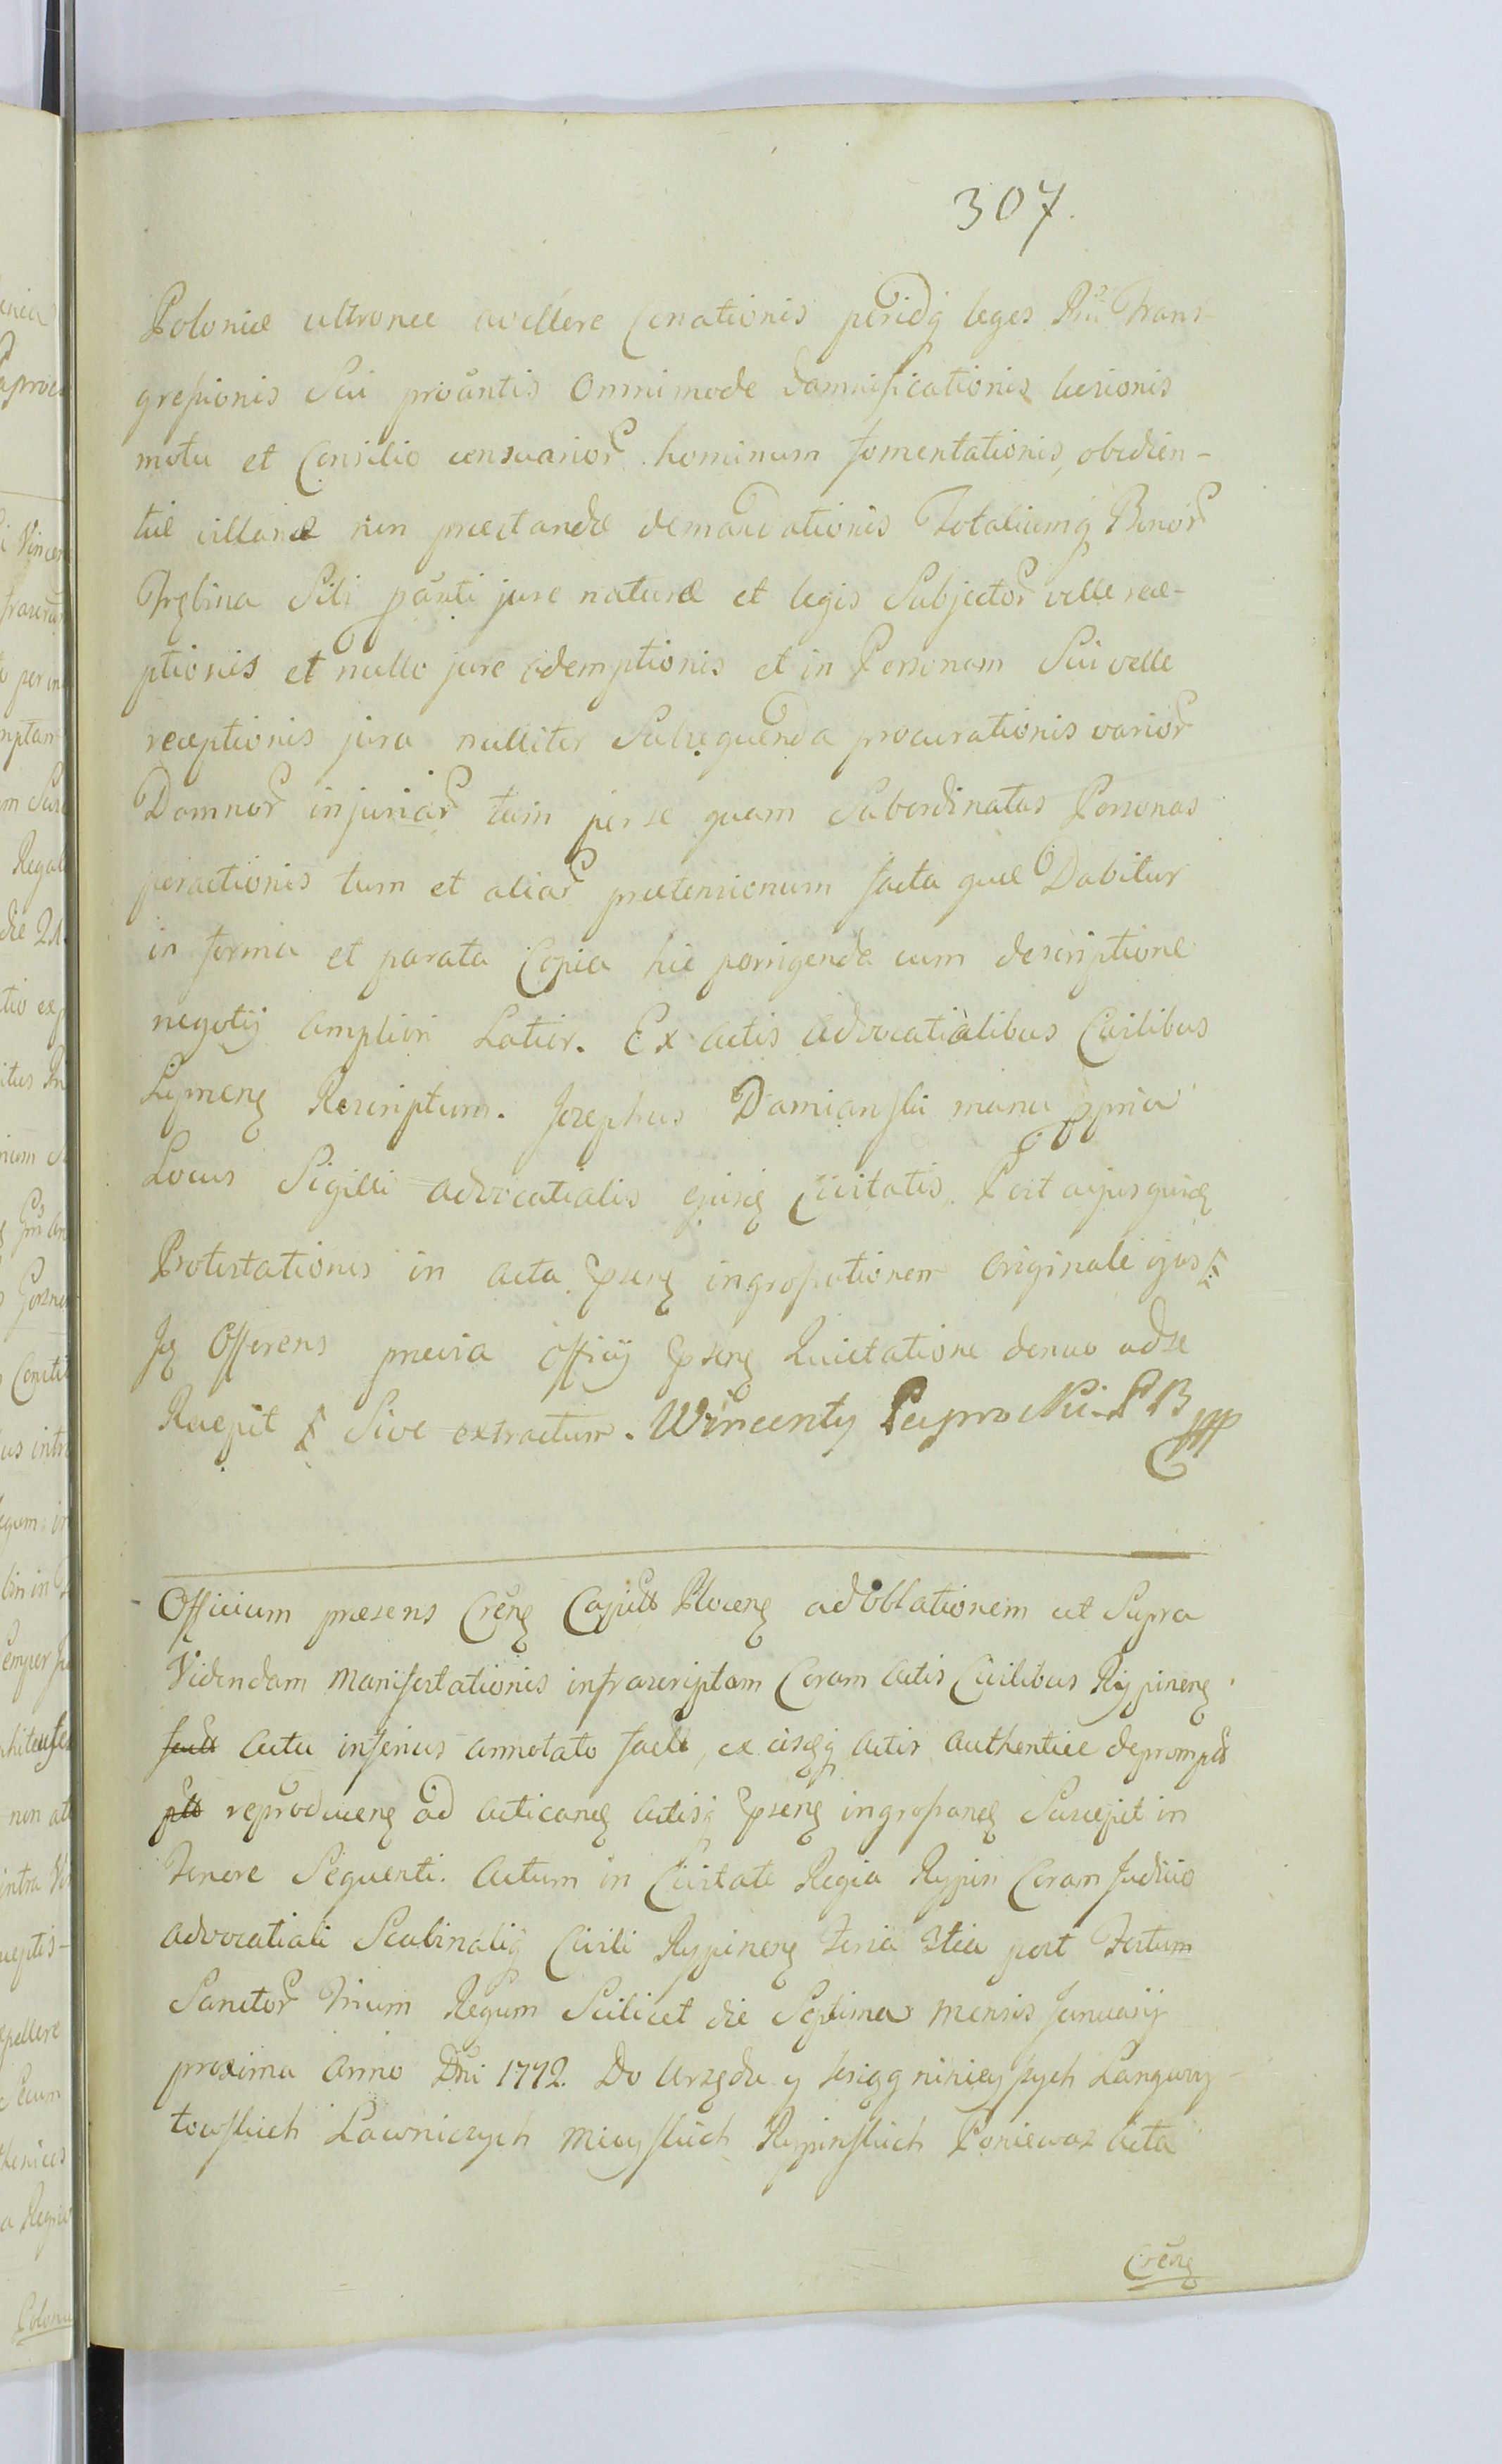 307.
Poloniæ ultronee avellere Conationis peridq leges Rni Trans-
gressionis Sui proantis Omnimode damnificationis læsionis
motu et Consilio censuarior hominum fomentationis, obedien-
tiæ villanæ non præstandæ demandationis Totaliumq Bonor
Sibi panti jure naturæ et legis Subjector velle rece-
ptionis et nullo jure ademptionis et in Personam Sui velle
receptionis jura nulliter Subsequenda procurationis varior
Damnor injuriar tam per se quam Subordinatas Personas
peractionis tum et aliar prætensionum facta quæ Dabitur
in forma et parata Copia hic porrigenda cum descriptione
negotij ampliori Latior. Ex actis advocatialibus Civilibus
Lipnens Rescriptum. Josephus Damianski manu ppria
Locus Sigilli advocatialis ejusd Civitatis. Post cujusquid
Protestationis in acta pseng ingrossationem Originale ejus
Id Offerens prævia officij pseng Quietatione denuo ad se
Recepit Sive extractum. Wincenty Paprocki P B mpp
Officium præsens Crens Capitt Plocens ad Oblationem ut Supra
Videndam Manifestationis infrascriptam Coram actis Civilibus Rypinens
factt actu inferius annotato factt, ex iisdq actis authentice deprompt
ptt reproducens ad acticand actisq pseng ingrossand Suscepit in
Tenore Sequenti. Actum in Civitate Regia Rypin Coram Judicio
advocatiali Scabinaliq Civili Rypinens Feria 3tia post Festum
Sanctor Trium Regum Scilicet die Septima Mensis Januarij
proxima Anno Dni 1772. Do Urzędu y Xsiąg ninieyszych Landwoy-
towskich Ławniczych Mieyskich Rypinskich Poniewaz Acta
Crens